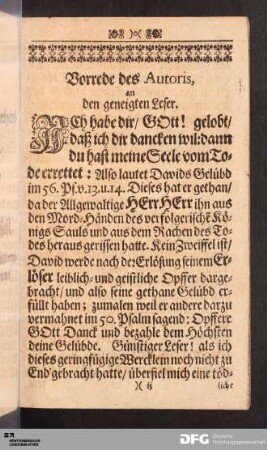 )o(
Vorrede des Autoris,
an
den geneigten Leser.
ICh habe dir/ GOtt! gelobt/
daß ich dir dancken wil: dann
du hast meine Seele vom To-
de errettet: Also lautet Davids Gelübd
im 56. Ps. v. 13. u. 14. Dieses hat er gethan/
da der Allgewaltige HErr HErr ihn aus
den Mord-Händen des verfolgerischē Kö-
nigs Sauls und aus dem Rachen des Tof-
des heraus gerissen hatte. Kein Zweiffel ist/
David werde nach der Erlösung seinem Er-
löser leiblich- und geistliche Opffer darge-
bracht/ und also seine gethane Gelübd er-
füllt haben; zumalen weil er andere darzu
vermahnet im 50. Psalm sagend: Opffere
GOtt Danck und bezahle dem Höchsten
deine Gelübde. Günstiger Leser! als ich
dieses geringfügige Wercklein noch nicht zu
End gebracht hatte/ überfiel mich eine töd-
)( ij
liche
DFG
Deutsche
Forschungsgemeinschaft